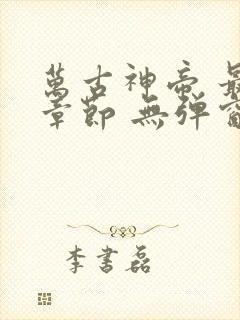 萬古神帝 最
章節 無彈窗
李書磊